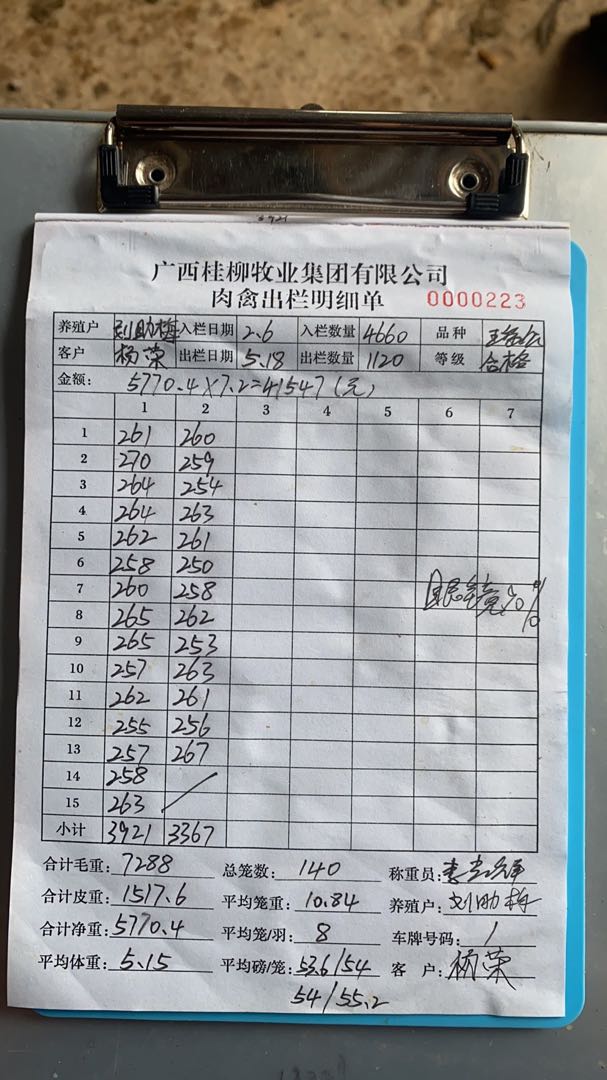 广西桂柳牧业集团有限公司
肉禽出栏明细单 0000223
养殖户 刘助梅 入栏日期 2.6 入栏数量 4660 品种
客户 杨荣 出栏日期 5.18 出栏数量 1120 等级 合格
金额: 5770.4×7.2=41547(元)
1 2 3 4 5 6 7
1 261 260
2 270 259
3 264 254
4 264 263
5 262 261
6 258 250
7 260 258
8 265 262
9 265 253
10 257 263
11 262 261
12 255 256
13 257 267
14 258
15 263
小计 3921 3367
合计毛重: 7288 总笼数: 140 称重员:
合计皮重: 1517.6 平均笼重: 10.84 养殖户: 刘助梅
合计净重: 5770.4 平均笼/羽: 8 车牌号码: 1
平均体重: 5.15 平均磅/笼: 53.6/54 客户: 杨荣
54/55.2